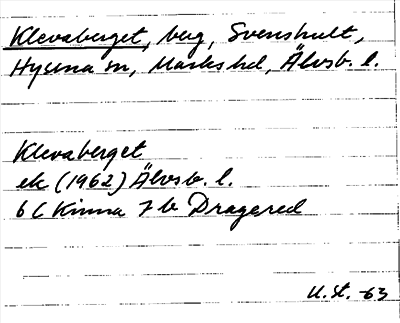 Klevaberget, berg, Svenshult,
Hyssna sn, Marks hd, Älvsb. l.
Klevaberget
ek (1962) Älvsb. l.
6 C Kinna 7 b Dragered
U. St. -63